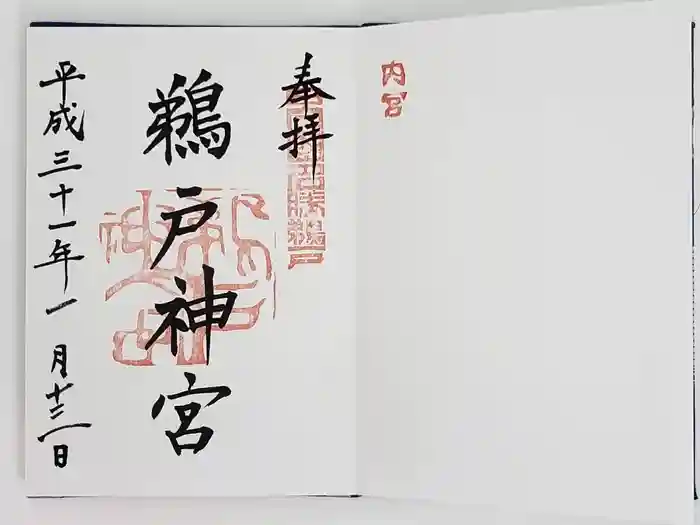 内宮
奉拝
勝鵜戸
鵜戸神宮
平成三十一年一月十三日